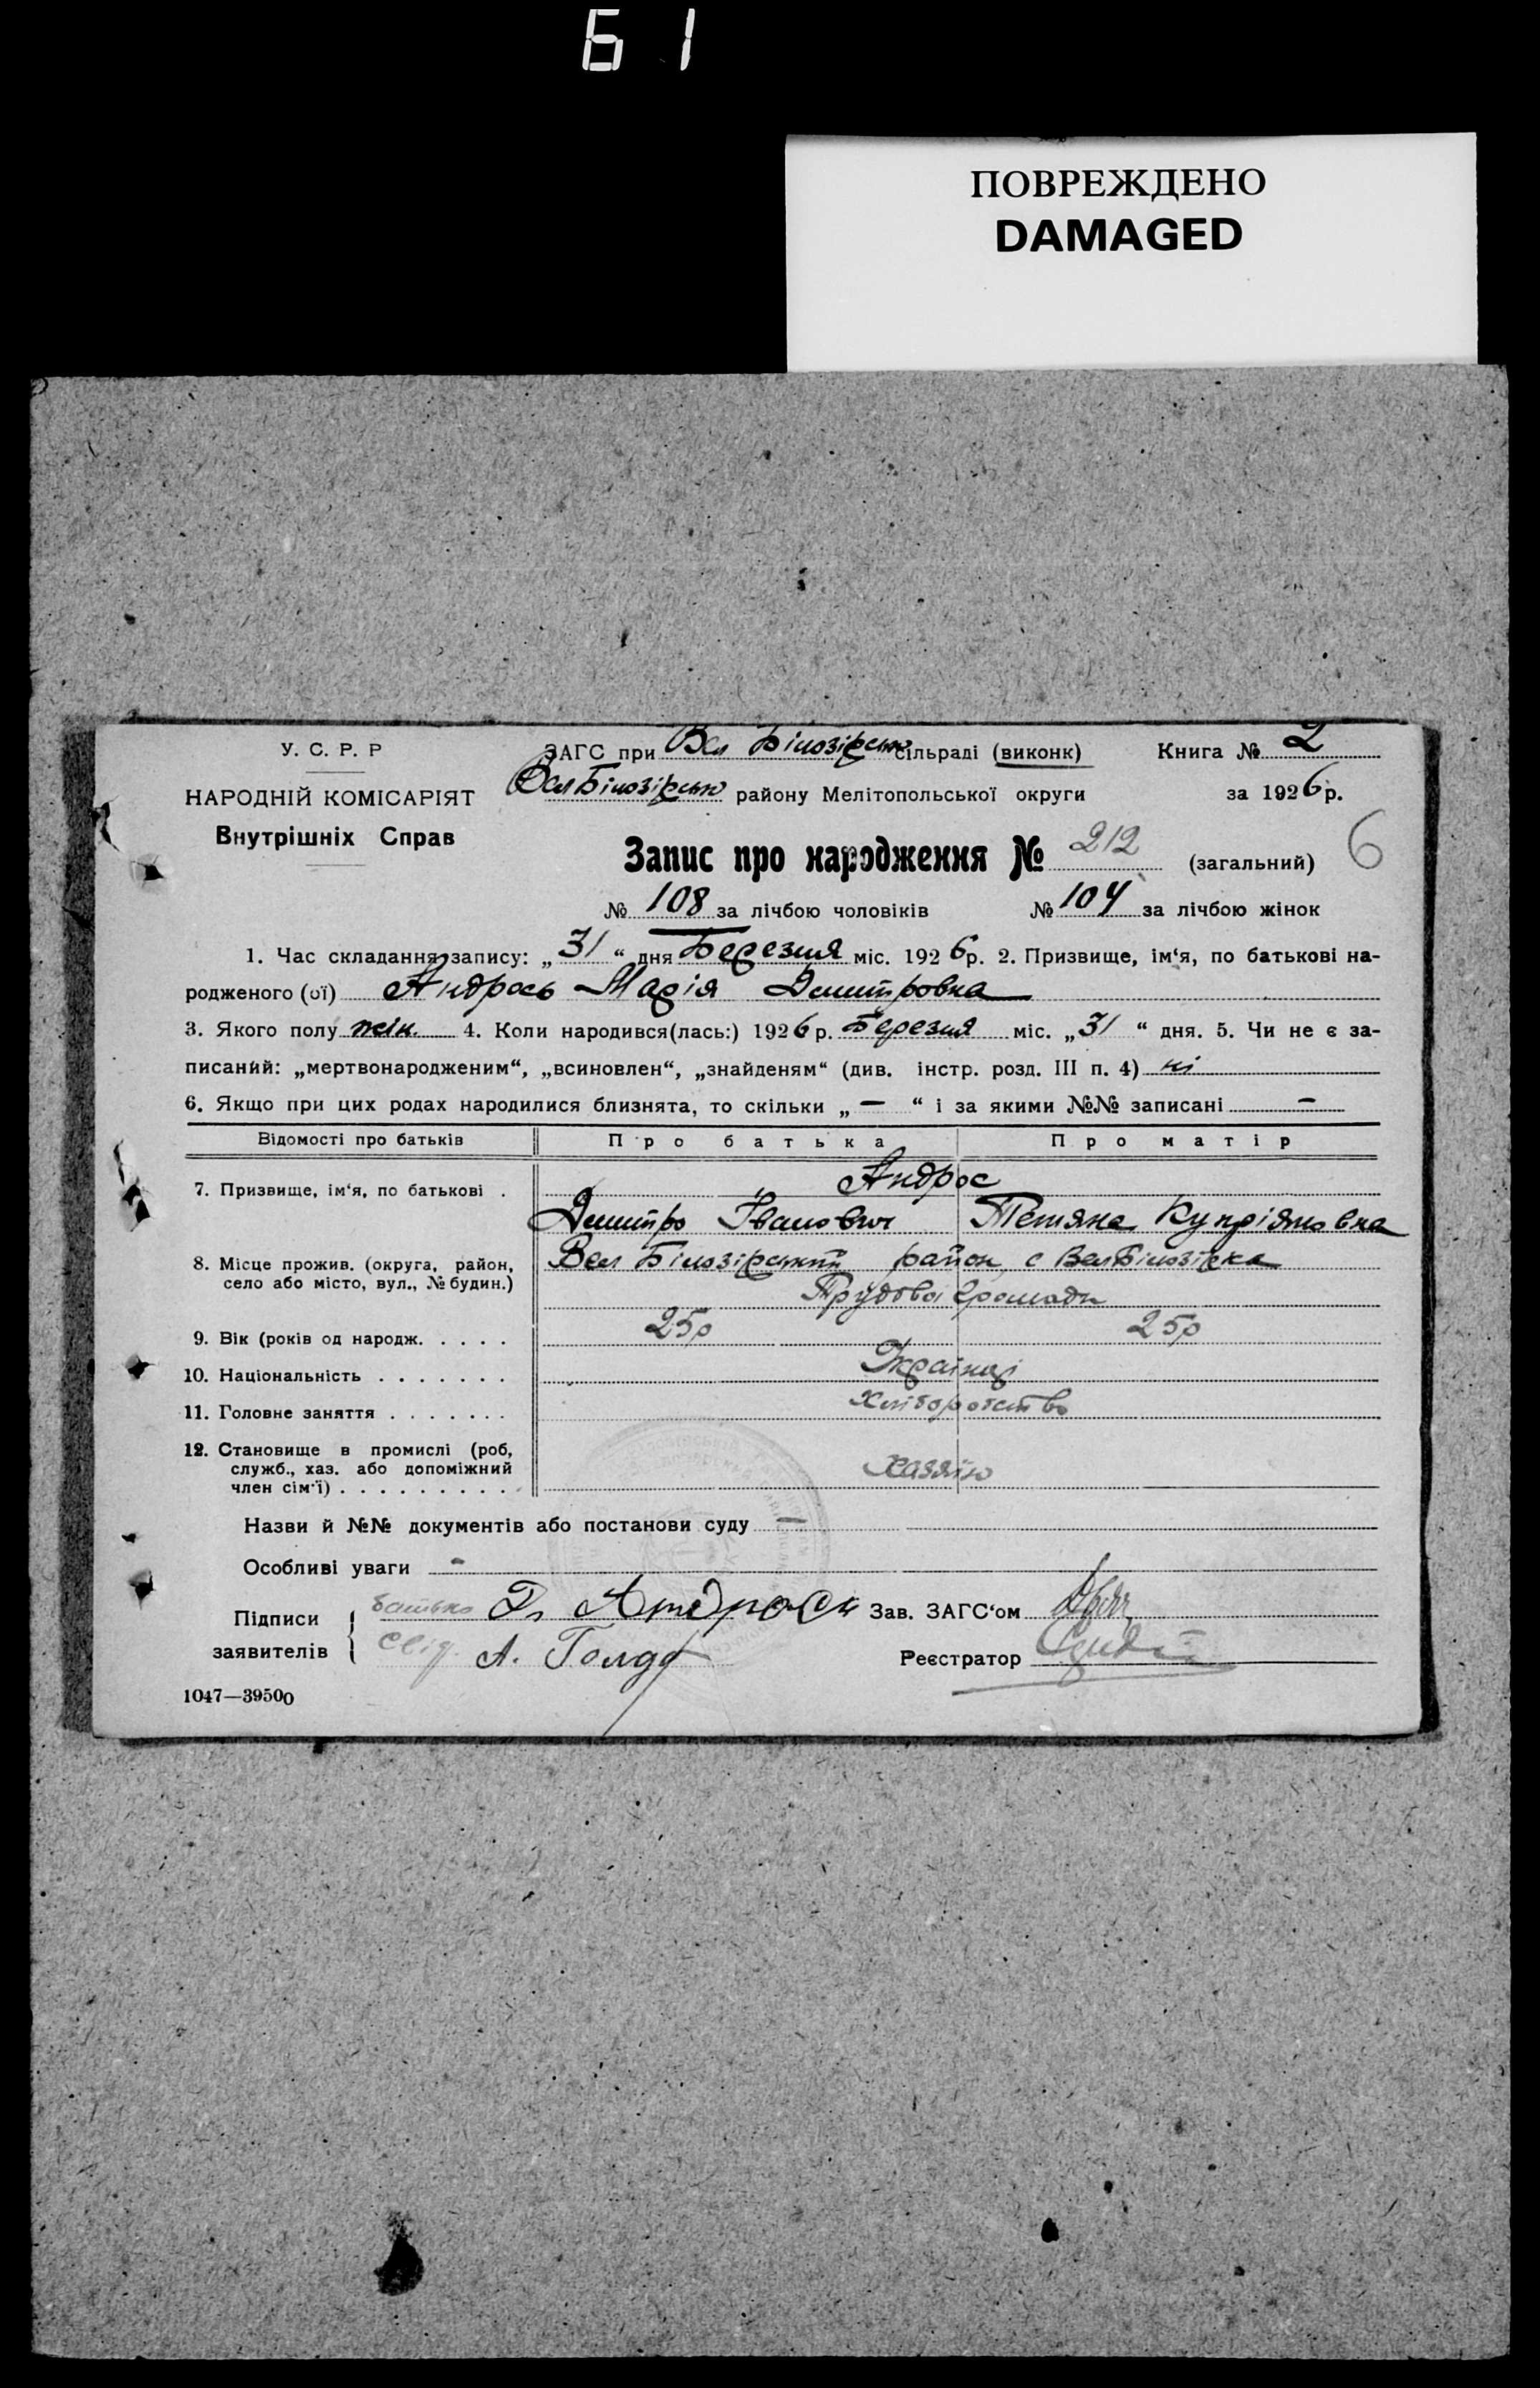 61
ПОВРЕЖДЕНО
DAMAGED
У. С. Р. Р
НАРОДНІЙ КОМІСАРІЯТ
Внутрішніх Справ
ЗАГС при Вел Білозірськ сільраді (виконк) Книга № 2
Вел Білозірськ району Мелітопольської округи за 1926 р.
Запис про народження № 212 (загальний) 6
№ 108 за лічбою чоловіків № 104 за лічбою жінок
1. Час складання запису: „31“ дня Березня міс. 1926 р. 2. Призвище, ім‘я, по батькові на-
родженого (ої) Андрось Марія Дмитровна
3. Якого полу жін. 4. Коли народився(лась:) 1926 р. Березня міс. „31“ дня. 5. Чи не є за-
писаний: „мертвонародженим“, „всиновлен“, „знайденям“ (див. інстр. розд. III п. 4) ні
6. Якщо при цих родах народилися близнята, то скільки „—“ і за якими №№ записані —
Відомості про батьків Про батька Про матір
7. Призвище, ім‘я, по батькові . Андрос
Дмитро Іванович Тетяна Купріяновна
8. Місце прожив. (округа, район, Вел Білозірський район, с Вел Білозірка
село або місто, вул., № будин.)
Трудова громада
9. Вік (років од народж. . . . . 25р 25р
10. Національність . . . . . . . Українці
11. Головне заняття . . . . . . . Хліборобство
12. Становище в промислі (роб,
служб., хаз. або допоміжний
член сім‘ї) . . . . . . . . . . Хазяїн
Назви й №№ документів або постанови суду —
Особливі уваги -
Підписи заявителів
батько Д. Андроси Зав. ЗАГС‘ом
свід. А. Реєстратор
1047—39500